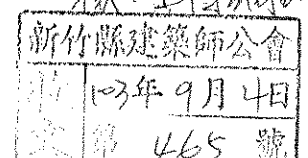 新竹縣建築師公會
收 103年9月4日
文 第 465 號